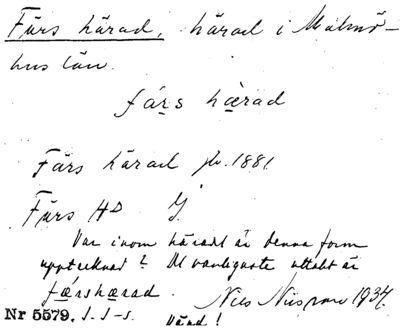 Färs härad, härad i Malmö-
hus län.
fá́rs hæ̀rad
Färs härad jb. 1881
Färs HD G
Var inom häradet är denna form
upptecknad? Det vanligaste uttalet är
færshærad. Nils Nilsson 1934.
Nr 5579. S. I-s. Vänd!